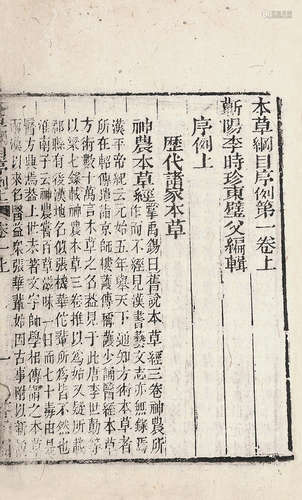 本草綱目序例第一卷上
蘄陽李時珍東璧父編輯
序例上
歷代諸家本草
神農本草經掌禹錫曰舊說本草經三卷神農所
作而不經見漢書藝文志亦無錄焉
漢平帝紀云元始五年舉天下通知方術本草者
所在軺傳遣詣京師樓護傳稱護少誦醫經本草
方術數十萬言本草之名蓋見于此唐李世勣等
以梁七錄載神農本草三卷推以為始又疑所載
郡縣有後漢地名似張機華佗輩所為皆不然也
淮南子云神農嘗百草滋味一日而七十毒由是
醫方興焉蓋上世未著文字師學相傳謂之本草
兩漢以來名醫益眾張華輩始因古學附以新說
本草綱目序例上 卷一上